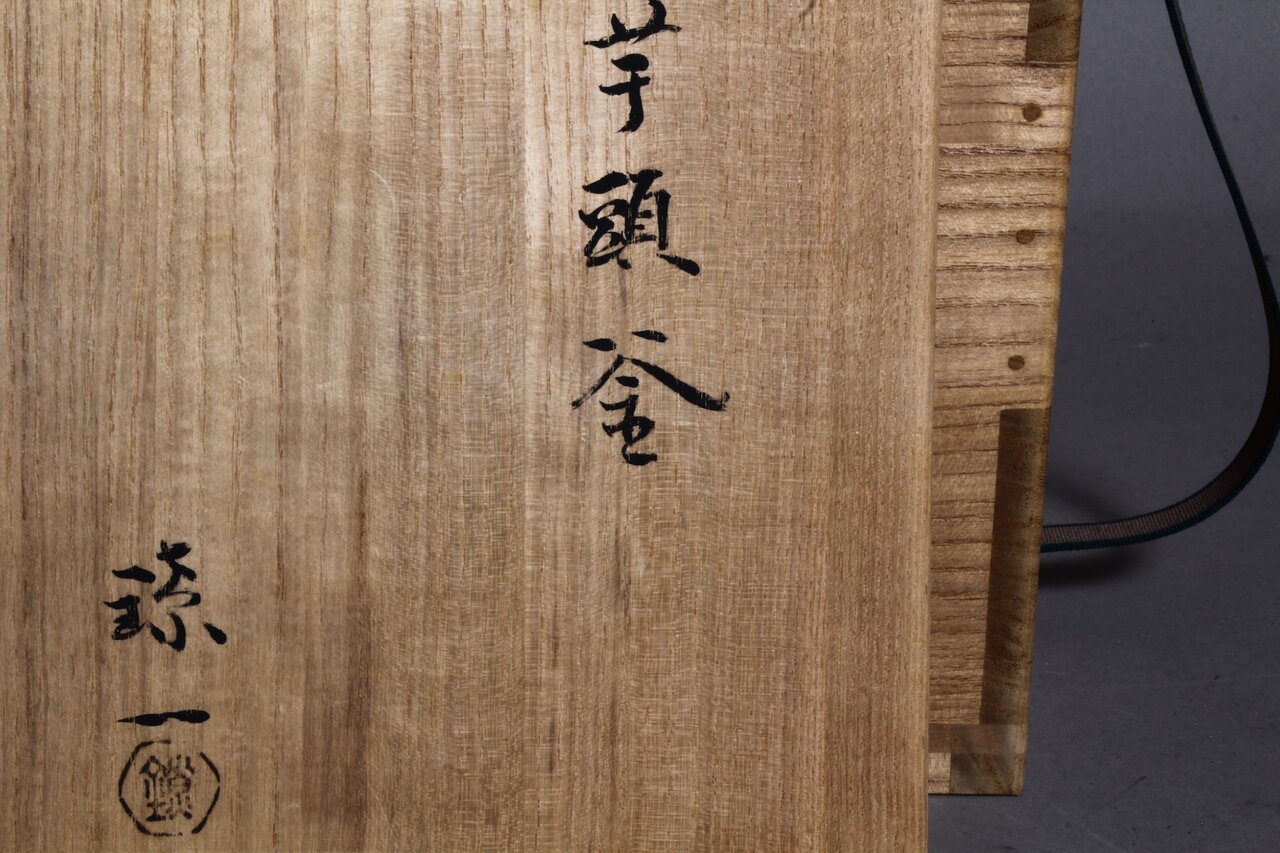 芋頭釜
一